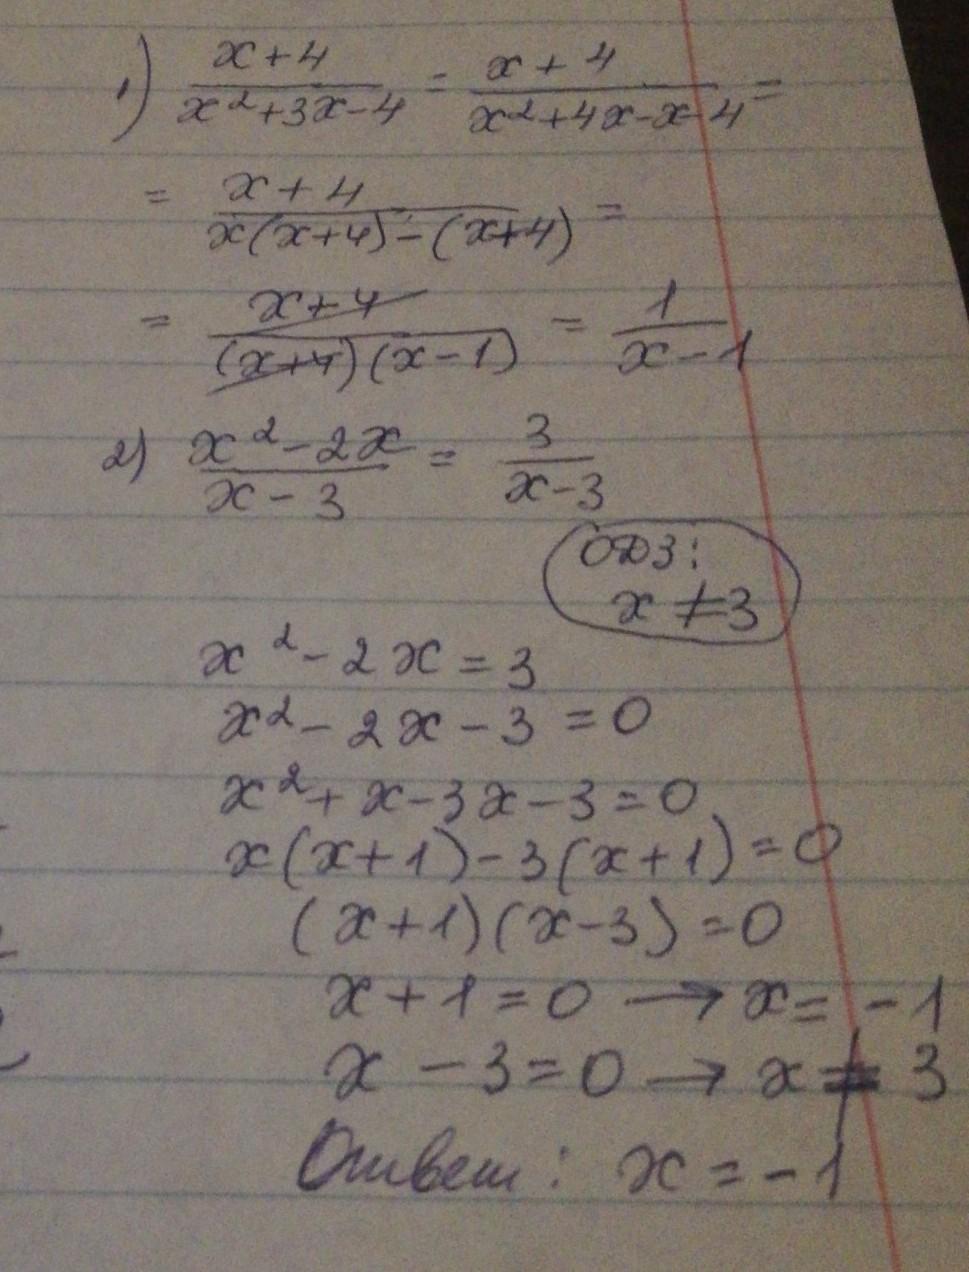 1) (x+4)/(x²+3x-4) = (x+4)/(x²+4x-x-4) =
= (x+4)/(x(x+4)-(x+4)) =
= (x+4)/((x+4)(x-1)) = 1/(x-1)
2) (x²-2x)/(x-3) = 3/(x-3)
ОДЗ:
x≠3
x²-2x=3
x²-2x-3=0
x²+x-3x-3=0
x(x+1)-3(x+1)=0
(x+1)(x-3)=0
x+1=0 → x=-1
x-3=0 → x≠3
Ответ: x=-1